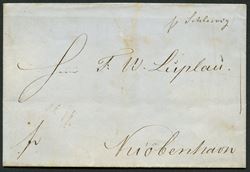 pr Schleswig
Herrn F. W. Lüplau.
fr
Kiöbenhavn